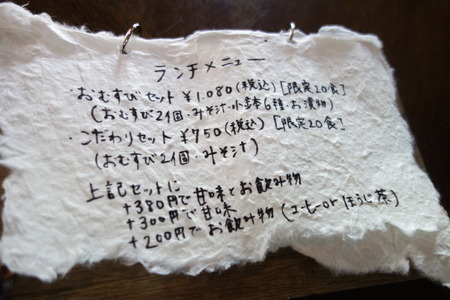 ランチメニュー
・おむすびセット ¥1.080(税込)[限定20食]
(おむすび2個・みそ汁・小鉢6種・お漬物)
・こだわりセット ¥750(税込)[限定20食]
(おむすび2個・みそ汁)
上記セットに
+380円で甘味とお飲み物
+300円で甘味
+200円でお飲み物(コーヒーorほうじ茶)